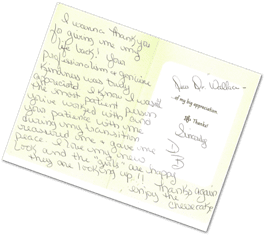 I wanna thank you
for giving me my
life back! Your
professionalism & genuine
kindness was truly
appreciated. I know I wasn't
the most patient person
you've worked with but
your patience with me
during my transition
reassured me & gave me
peace. I love my new
look and the "girls" are happy
they are looking up!! Thanks again
enjoy the
cheesecake
Dear Dr. Wallace -
of my big appreciation.
Thanks!
Sincerely